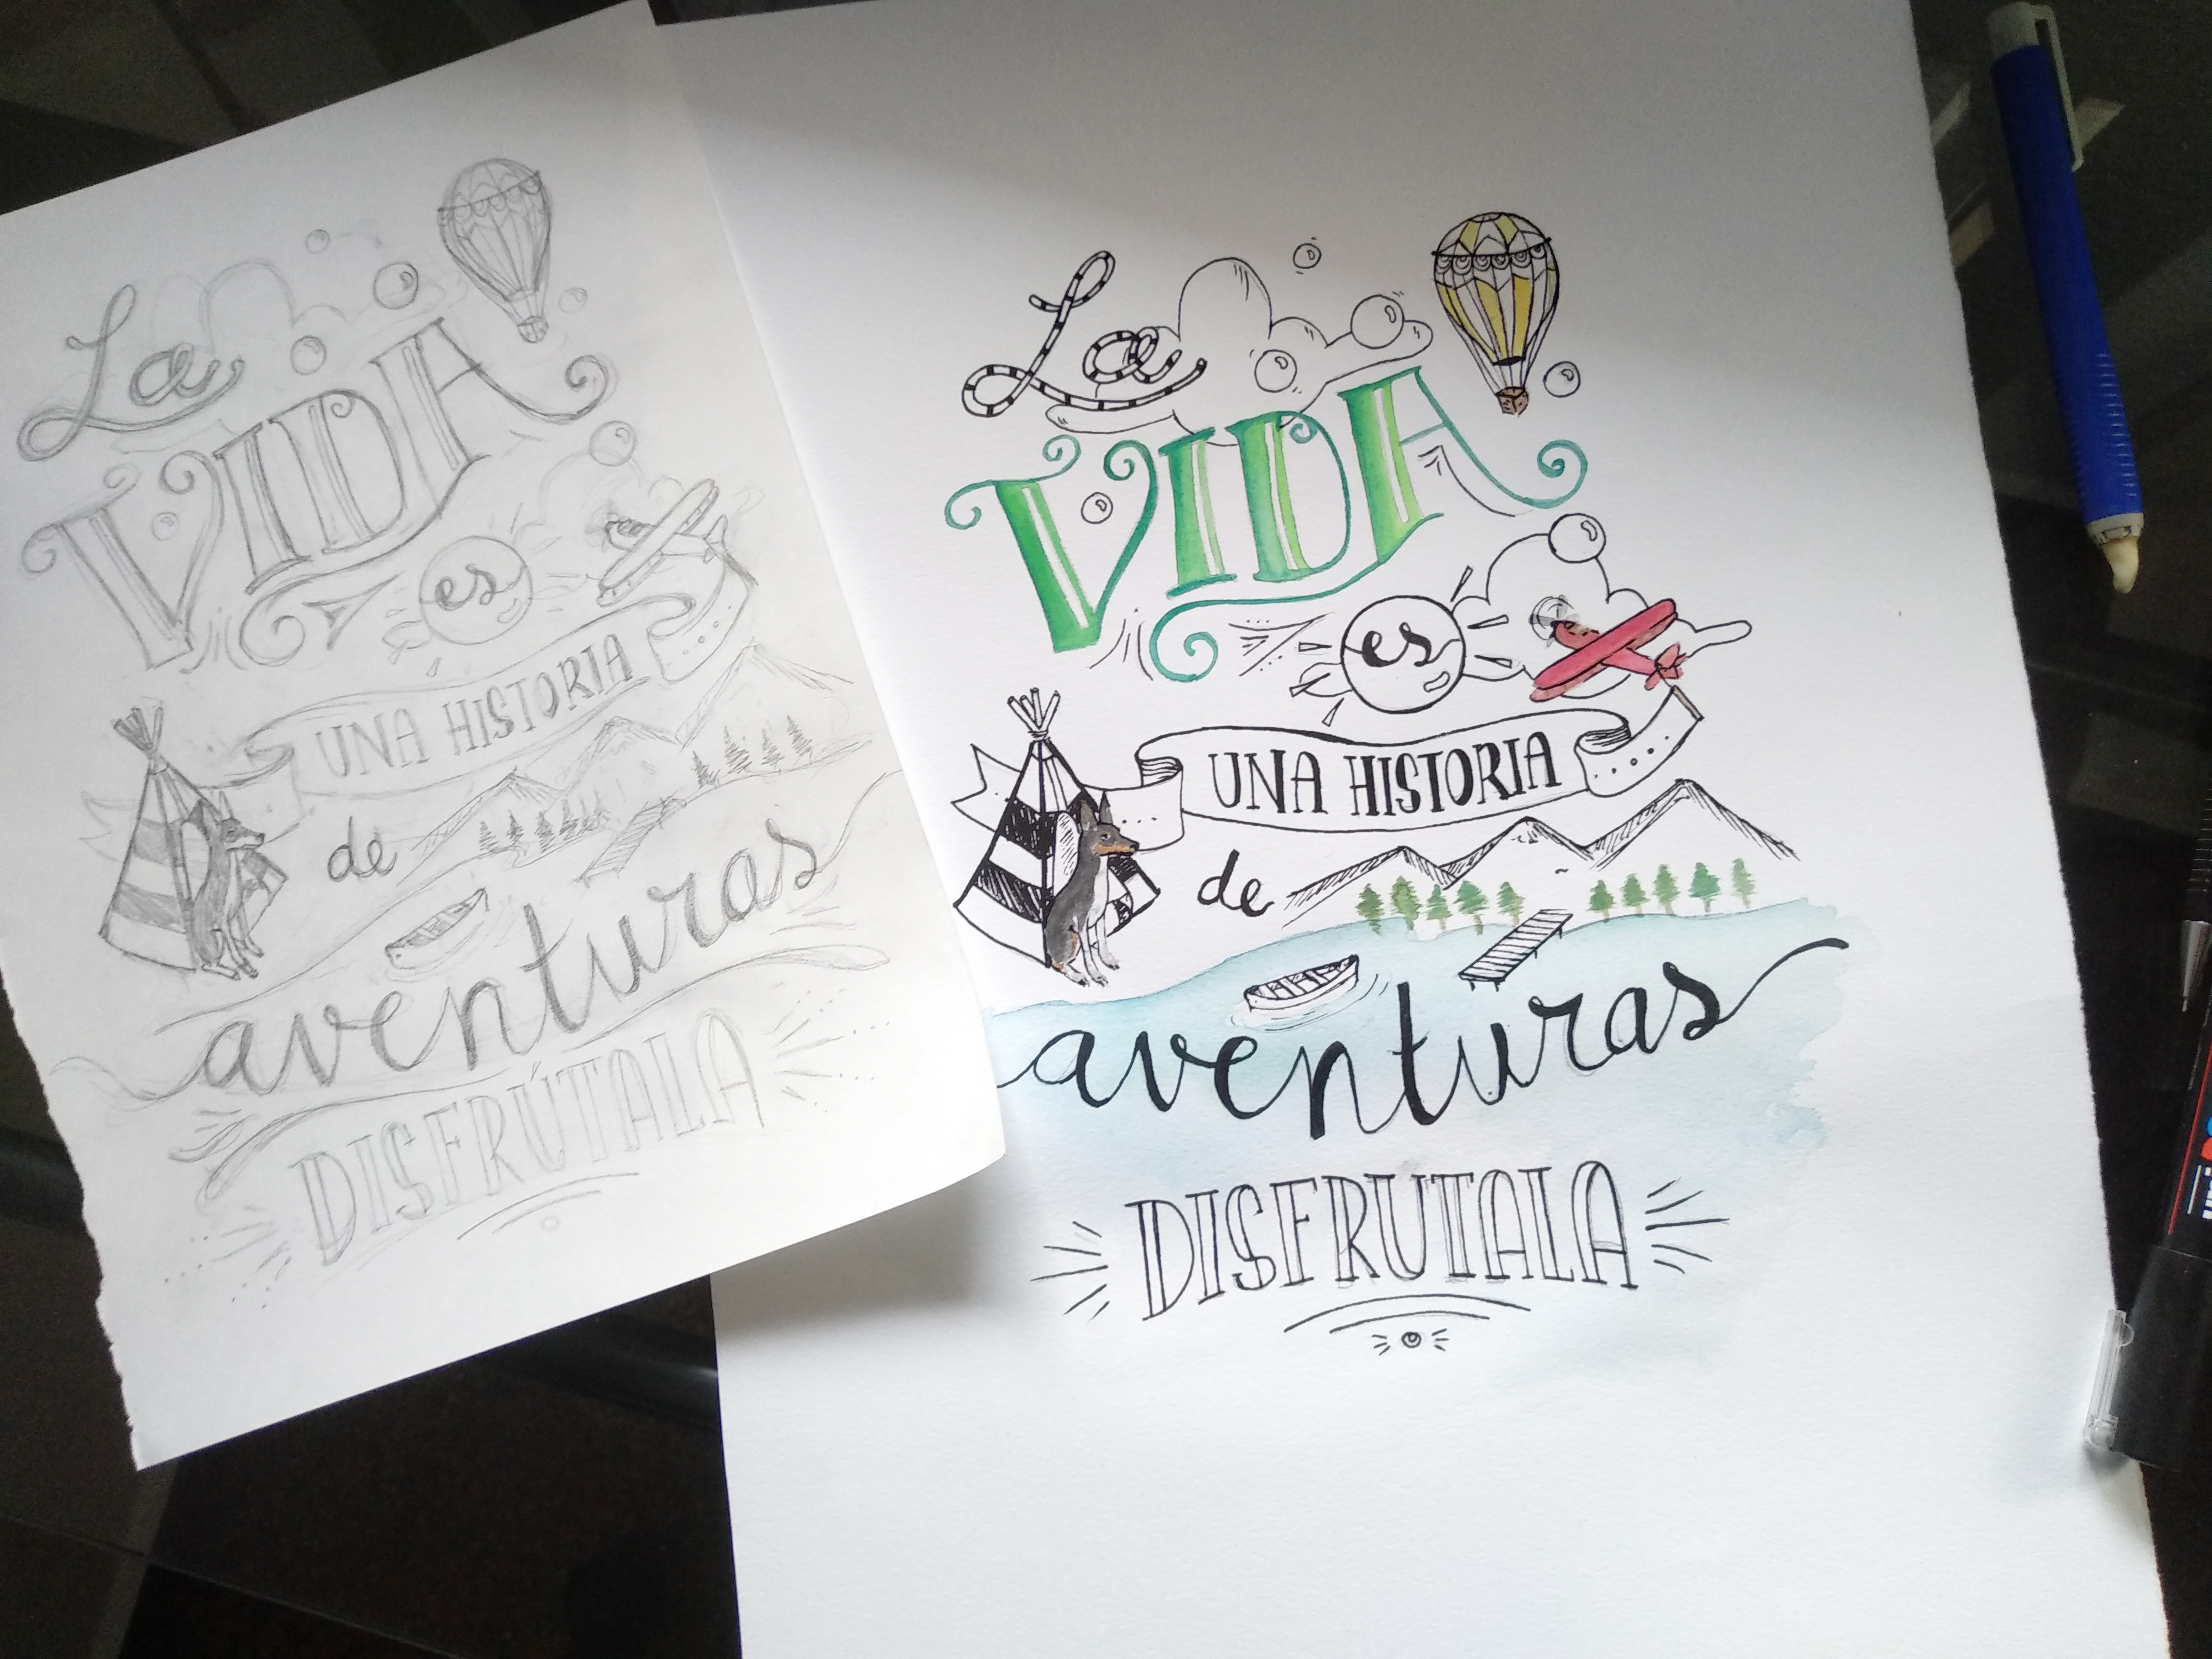 La
VIDA
es
UNA HISTORIA
de
aventuras
DISFRÚTALA
La
VIDA
es
UNA HISTORIA
de
aventuras
DISFRUTALA